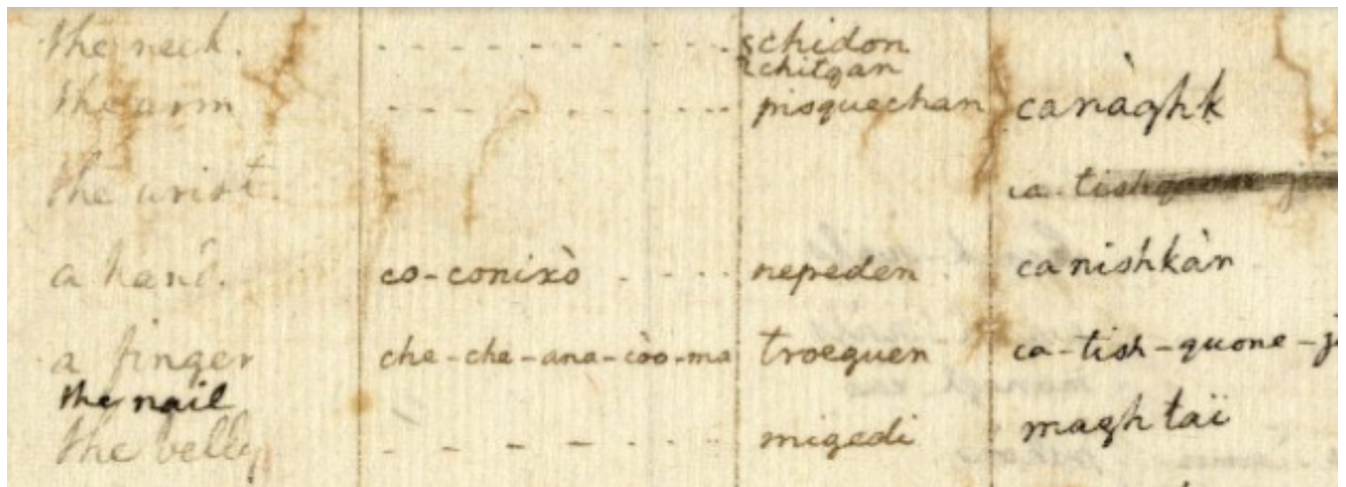 the neck. - - - - - - - - - - schidon
chitgan
the arm - - - - - - - - - - pisquechan canàghk
the wrist. ca-tishquone-
a hand. co-conixò - - - - nepeden canishkàn
a finger che-che-ana-còo-ma troeguen ca-tish-quone-
the nail
the belly - - - - - - - migedi maghtaï